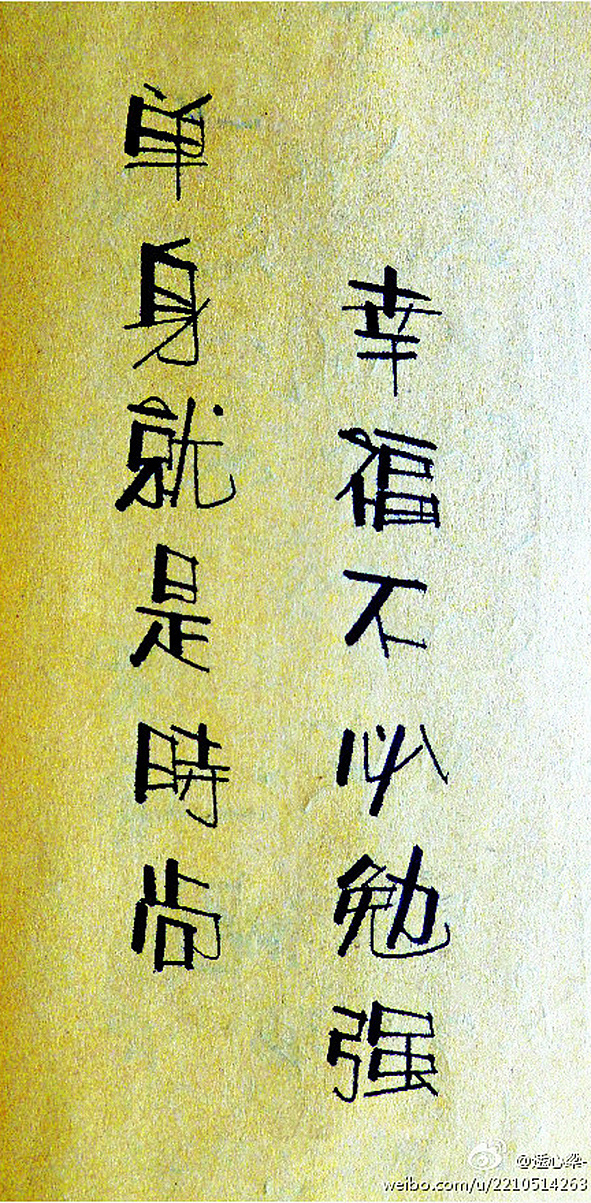 单身就是時尚
幸福不必勉强
weibo.com/u/2210514263